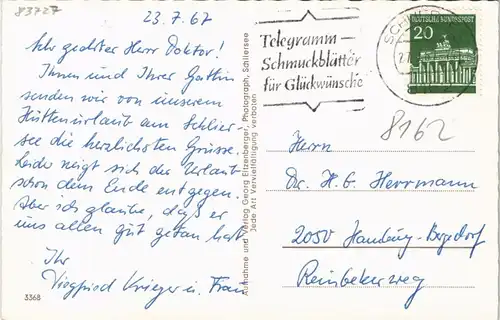 83727
23.7.67
Sehr geehrter Herr Doktor!
Ihnen und Ihrer Gattin
senden wir von unserem
Hüttenurlaub am Schlier-
see die herzlichsten Grüsse.
Leider neigt sich der Urlaub
schon dem Ende entgegen.
Aber ich glaube, daß er
uns allen gut getan hat.
Ihr
Siegfried Krieger u. Frau
3368
Aufnahme und Verlag Georg Ehrenberger, Photograph, Schliersee
Jede Art Vervielfältigung verboten
Telegramm —
Schmuckblätter
für Glückwünsche
DEUTSCHE BUNDESPOST
20
8162
Herrn
Dr. H. G. Herrmann
2050 Hamburg-Bergedorf
Reinbekerweg